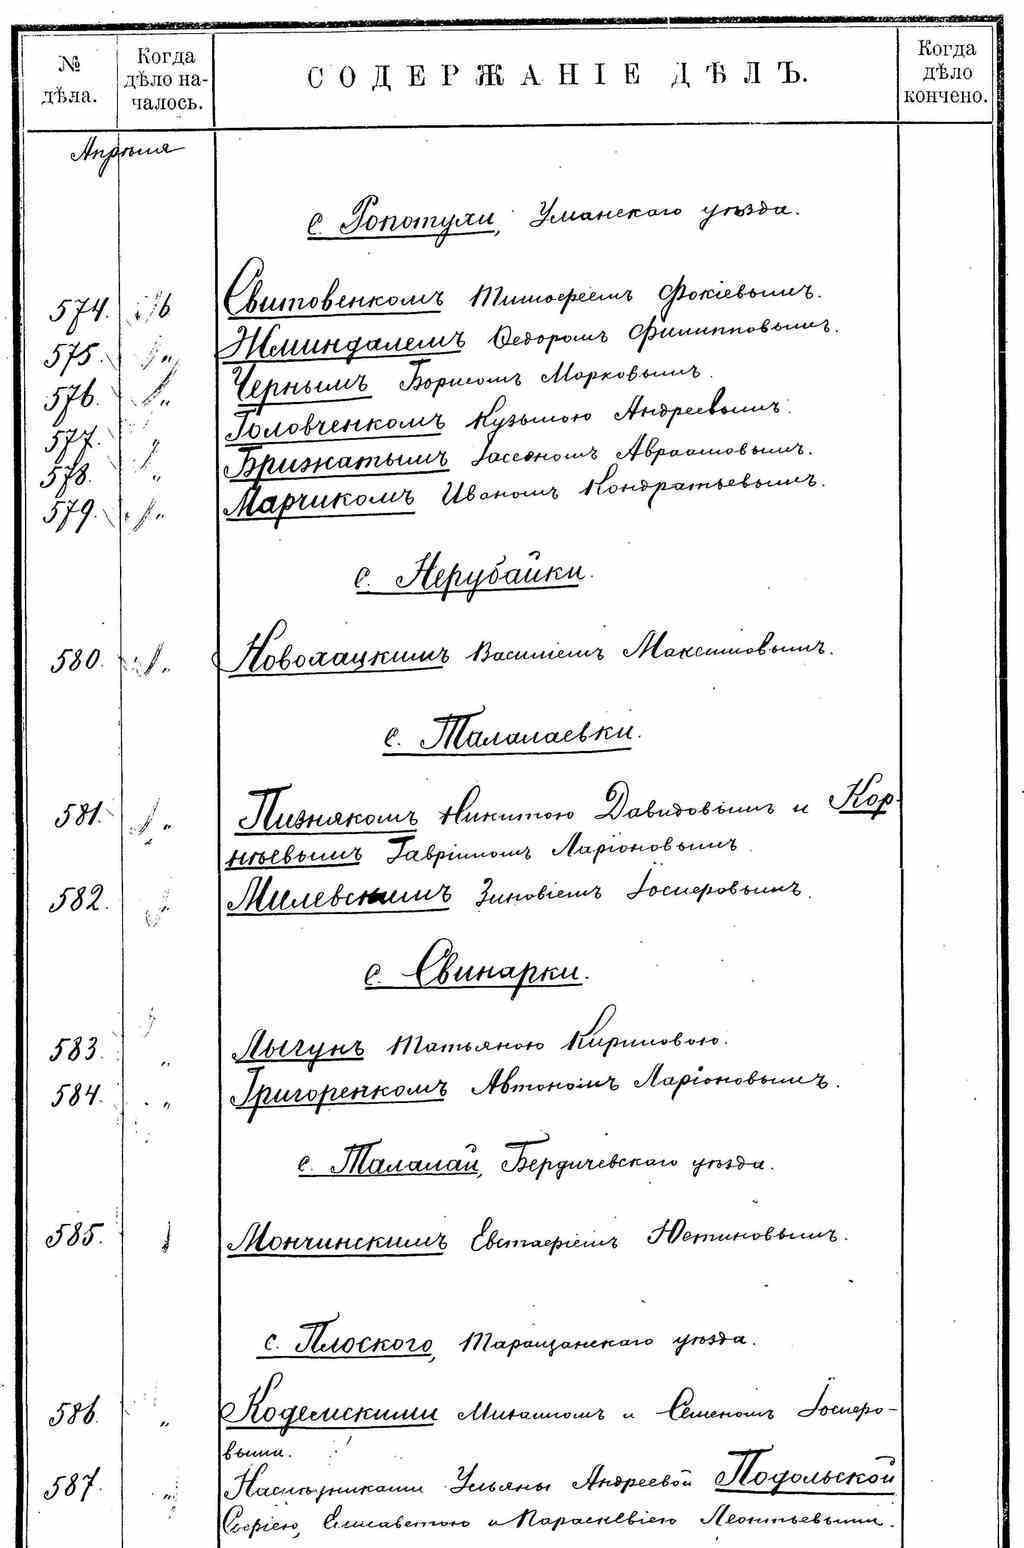 № дѣла.
Когда дѣло началось.
СОДЕРЖАНІЕ ДѢЛЪ.
Когда дѣло кончено.
Апрѣля
с. Ропотухи, Уманскаго уѣзда.
574. Свитовенкомъ Тимофеемъ Фокіевымъ.
575. Жминдалемъ Федоромъ Филипповымъ.
576. Чернымъ Борисомъ Марковымъ.
577. Головченкомъ Кузьмою Андреевымъ.
578. Брижатымъ Іассономъ Авраамовымъ.
579. Марчикомъ Иваномъ Кондратьевымъ.
с. Нерубайки.
580. Новохацкимъ Василіемъ Максимовымъ.
с. Талалаевки.
581. Пизнякомъ Никитою Давидовымъ и Кор-
нѣевымъ Гавріиломъ Ларіоновымъ.
582. Милевскимъ Зиновіемъ Іосифовымъ.
с. Свинарки.
583. Лычунъ Татьяною Кириловою.
584. Григоренкомъ Автономъ Ларіоновымъ.
с. Талалай, Бердичевскаго уѣзда.
585. Мончинскимъ Евстафіемъ Юстиновымъ.
с. Плоского, Таращанскаго уѣзда.
586. Кодемскими Михаиломъ и Семеномъ Іосифо-
выми.
587. Наслѣдниками Ульяны Андреевой Подольской
Софіею, Елисаветою и Параскевіею Леонтьевыми.